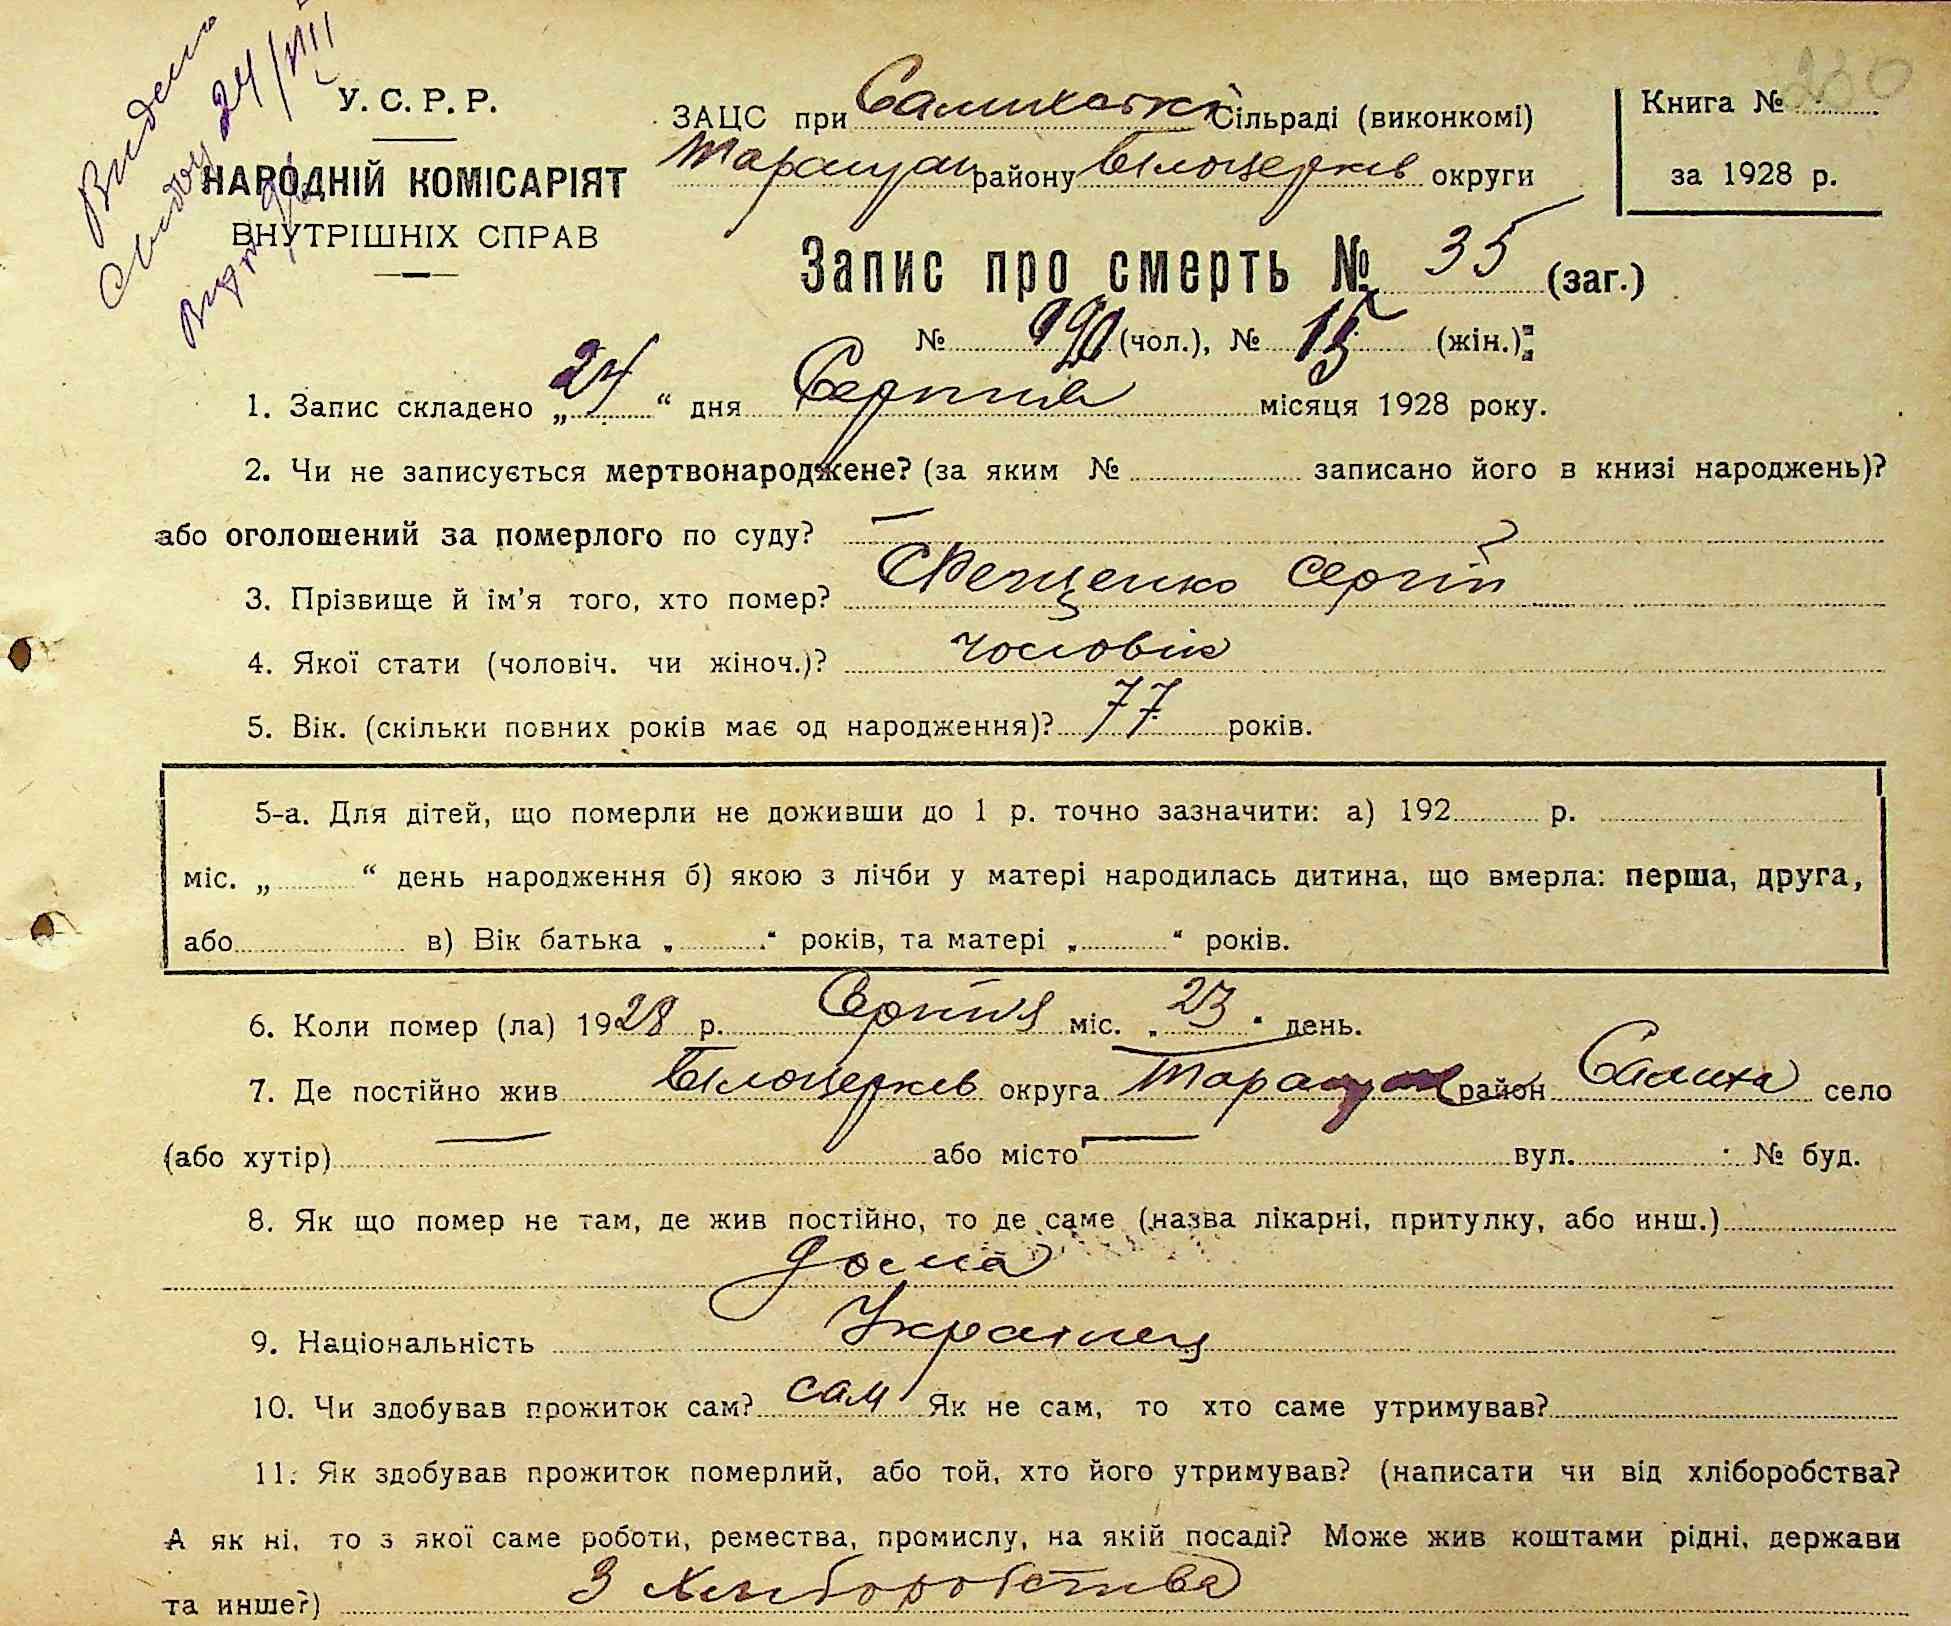 230
Видено
24/VIII
У. С. Р. Р.
НАРОДНІЙ КОМІСАРІЯТ
ВНУТРІШНІХ СПРАВ
ЗАЦС при Салихській Сільраді (виконкомі)
Таращан району Білоцерків округи
Книга №
за 1928 р.
Запис про смерть № 35 (заг.)
№ 20 (чол.), № 15 (жін.)
1. Запис складено „ 24 “ дня Серпня місяця 1928 року.
2. Чи не записується мертвонароджене? (за яким № записано його в книзі народжень)?
або оголошений за померлого по суду? —
3. Прізвище й ім'я того, хто помер? Сергій
4. Якої стати (чоловіч. чи жіноч.)? чоловік
5. Вік. (скільки повних років має од народження)? 77 років.
5-а. Для дітей, що померли не доживши до 1 р. точно зазначити: а) 192 р.
міс. „ “ день народження б) якою з лічби у матері народилась дитина, що вмерла: перша, друга,
або в) Вік батька „ “ років, та матері „ “ років.
6. Коли помер (ла) 1928 р. Серпня міс. „ 23 “ день.
7. Де постійно жив Білоцерків округа Таращан район Салиха село
(або хутір) — або місто — вул. № буд.
8. Як що помер не там, де жив постійно, то де саме (назва лікарні, притулку, або инш.)
дома
9. Національність Українец
10. Чи здобував прожиток сам? сам Як не сам, то хто саме утримував?
11. Як здобував прожиток померлий, або той, хто його утримував? (написати чи від хліборобства?
А як ні, то з якої саме роботи, ремества, промислу, на якій посаді? Може жив коштами рідні, держави
та инше?) З хліборобства